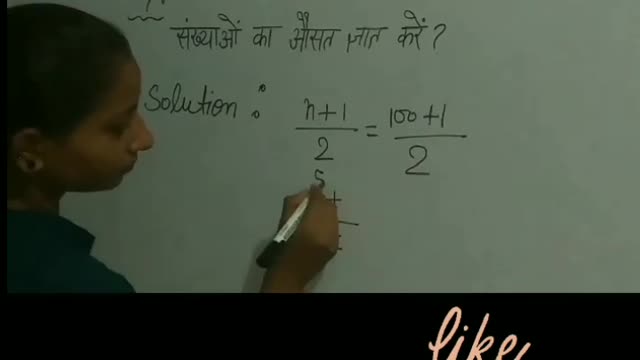 संख्याओं का औसत ज्ञात करें ?
Solution :
n+1 / 2 = 100+1 / 2
5
like